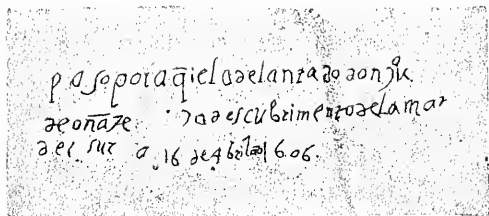 pasoporaq̄i eladelantadodonjuº
deoñate descubrimentodelamar
del sur a 16 de Abril 1606.